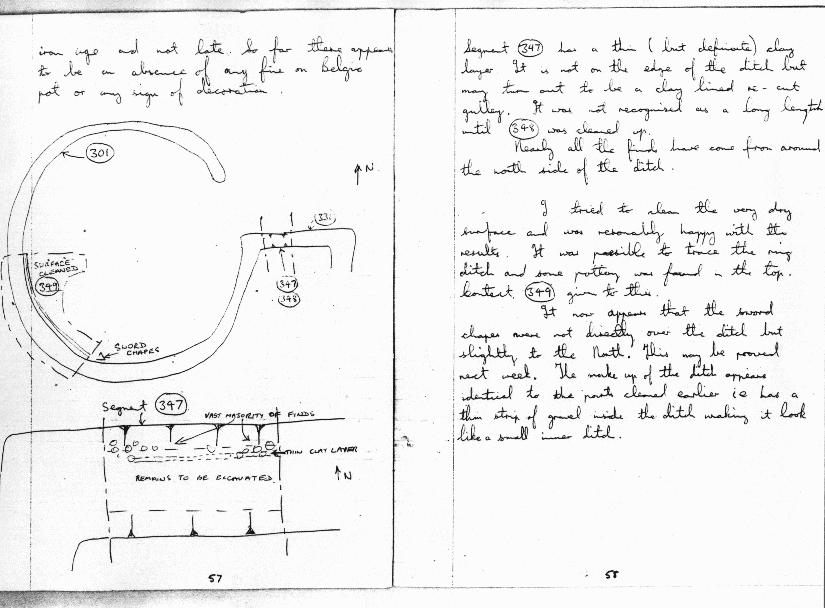 iron age and not late. So far there appears
to be an absence of any fine or Belgic
pot or any sign of decoration.
301
N
331
SURFACE
CLEANED
349
347
348
SWORD
CHAPES
Segment 347
VAST MAJORITY OF FINDS
THIN CLAY LAYER
REMAINS TO BE EXCAVATED
N
57
Segment 347 has a thin (but definate) clay
layer It is not on the edge of the ditch but
may turn out to be a clay lined re-cut
gulley. It was not recognised as a long length
until 348 was cleaned up.
Nearly all the finds have come from around
the north side of the ditch.
I tried to clean the very dry
surface and was resonably happy with the
results. It was possible to trace the ring
ditch and some pottery was found in the top.
Context 349 given to this.
It now appears that the sword
chapes were not directly over the ditch but
slightly to the North. This may be proved
next week. The make up of the ditch appears
identical to the parts cleaned earlier ie has a
thin strip of gravel inside the ditch making it look
like a small inner ditch.
58